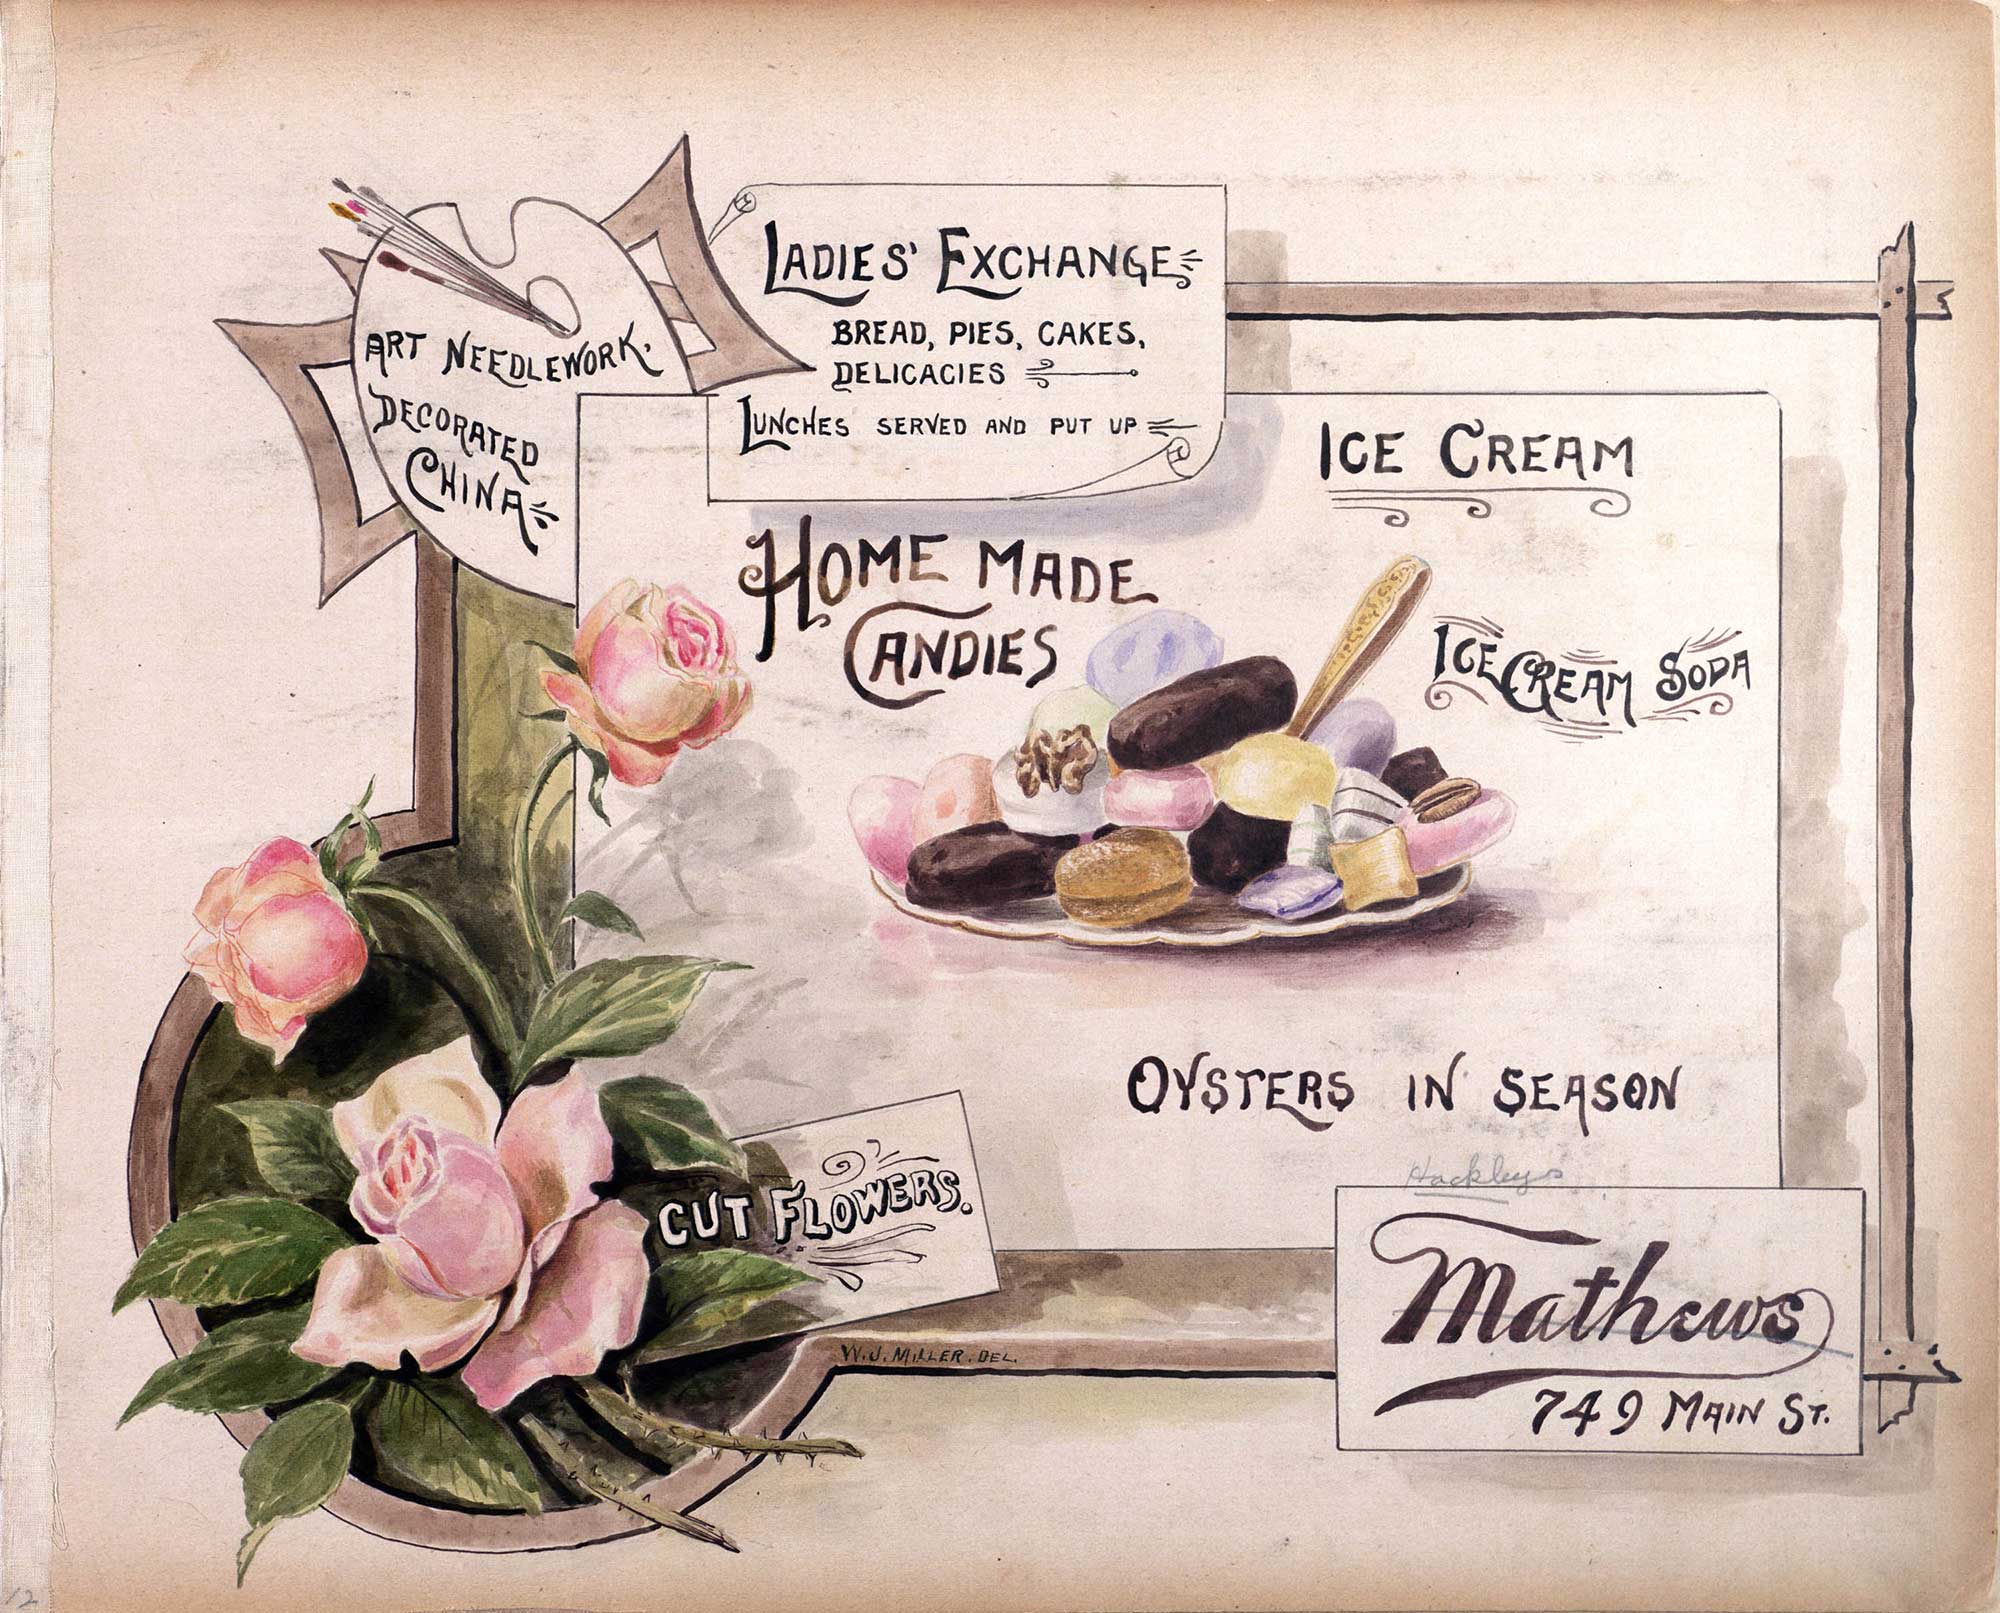 LADIES' EXCHANGE
BREAD, PIES, CAKES,
DELICACIES
LUNCHES SERVED AND PUT UP
ART NEEDLEWORK.
DECORATED
CHINA
ICE CREAM
HOME MADE
CANDIES
ICE CREAM SODA
OYSTERS IN SEASON
Hackleys
CUT FLOWERS.
Mathews
749 MAIN ST.
W.J. MILLER. DEL.
12